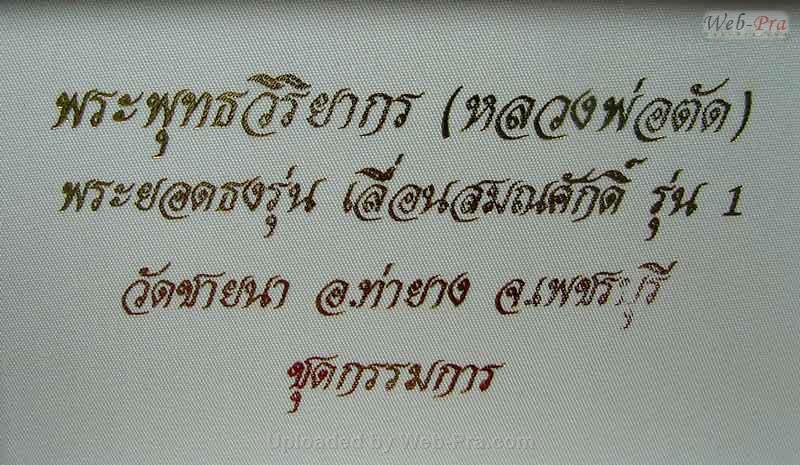 Web-Pra
พระพุทธวิริยากร (หลวงพ่อตัด)
พระยอดธงรุ่น เลื่อนสมณศักดิ์ รุ่น 1
วัดชายนา อ.ท่ายาง จ.เพชรบุรี
ชุดกรรมการ
Uploaded by Web-Pra.com